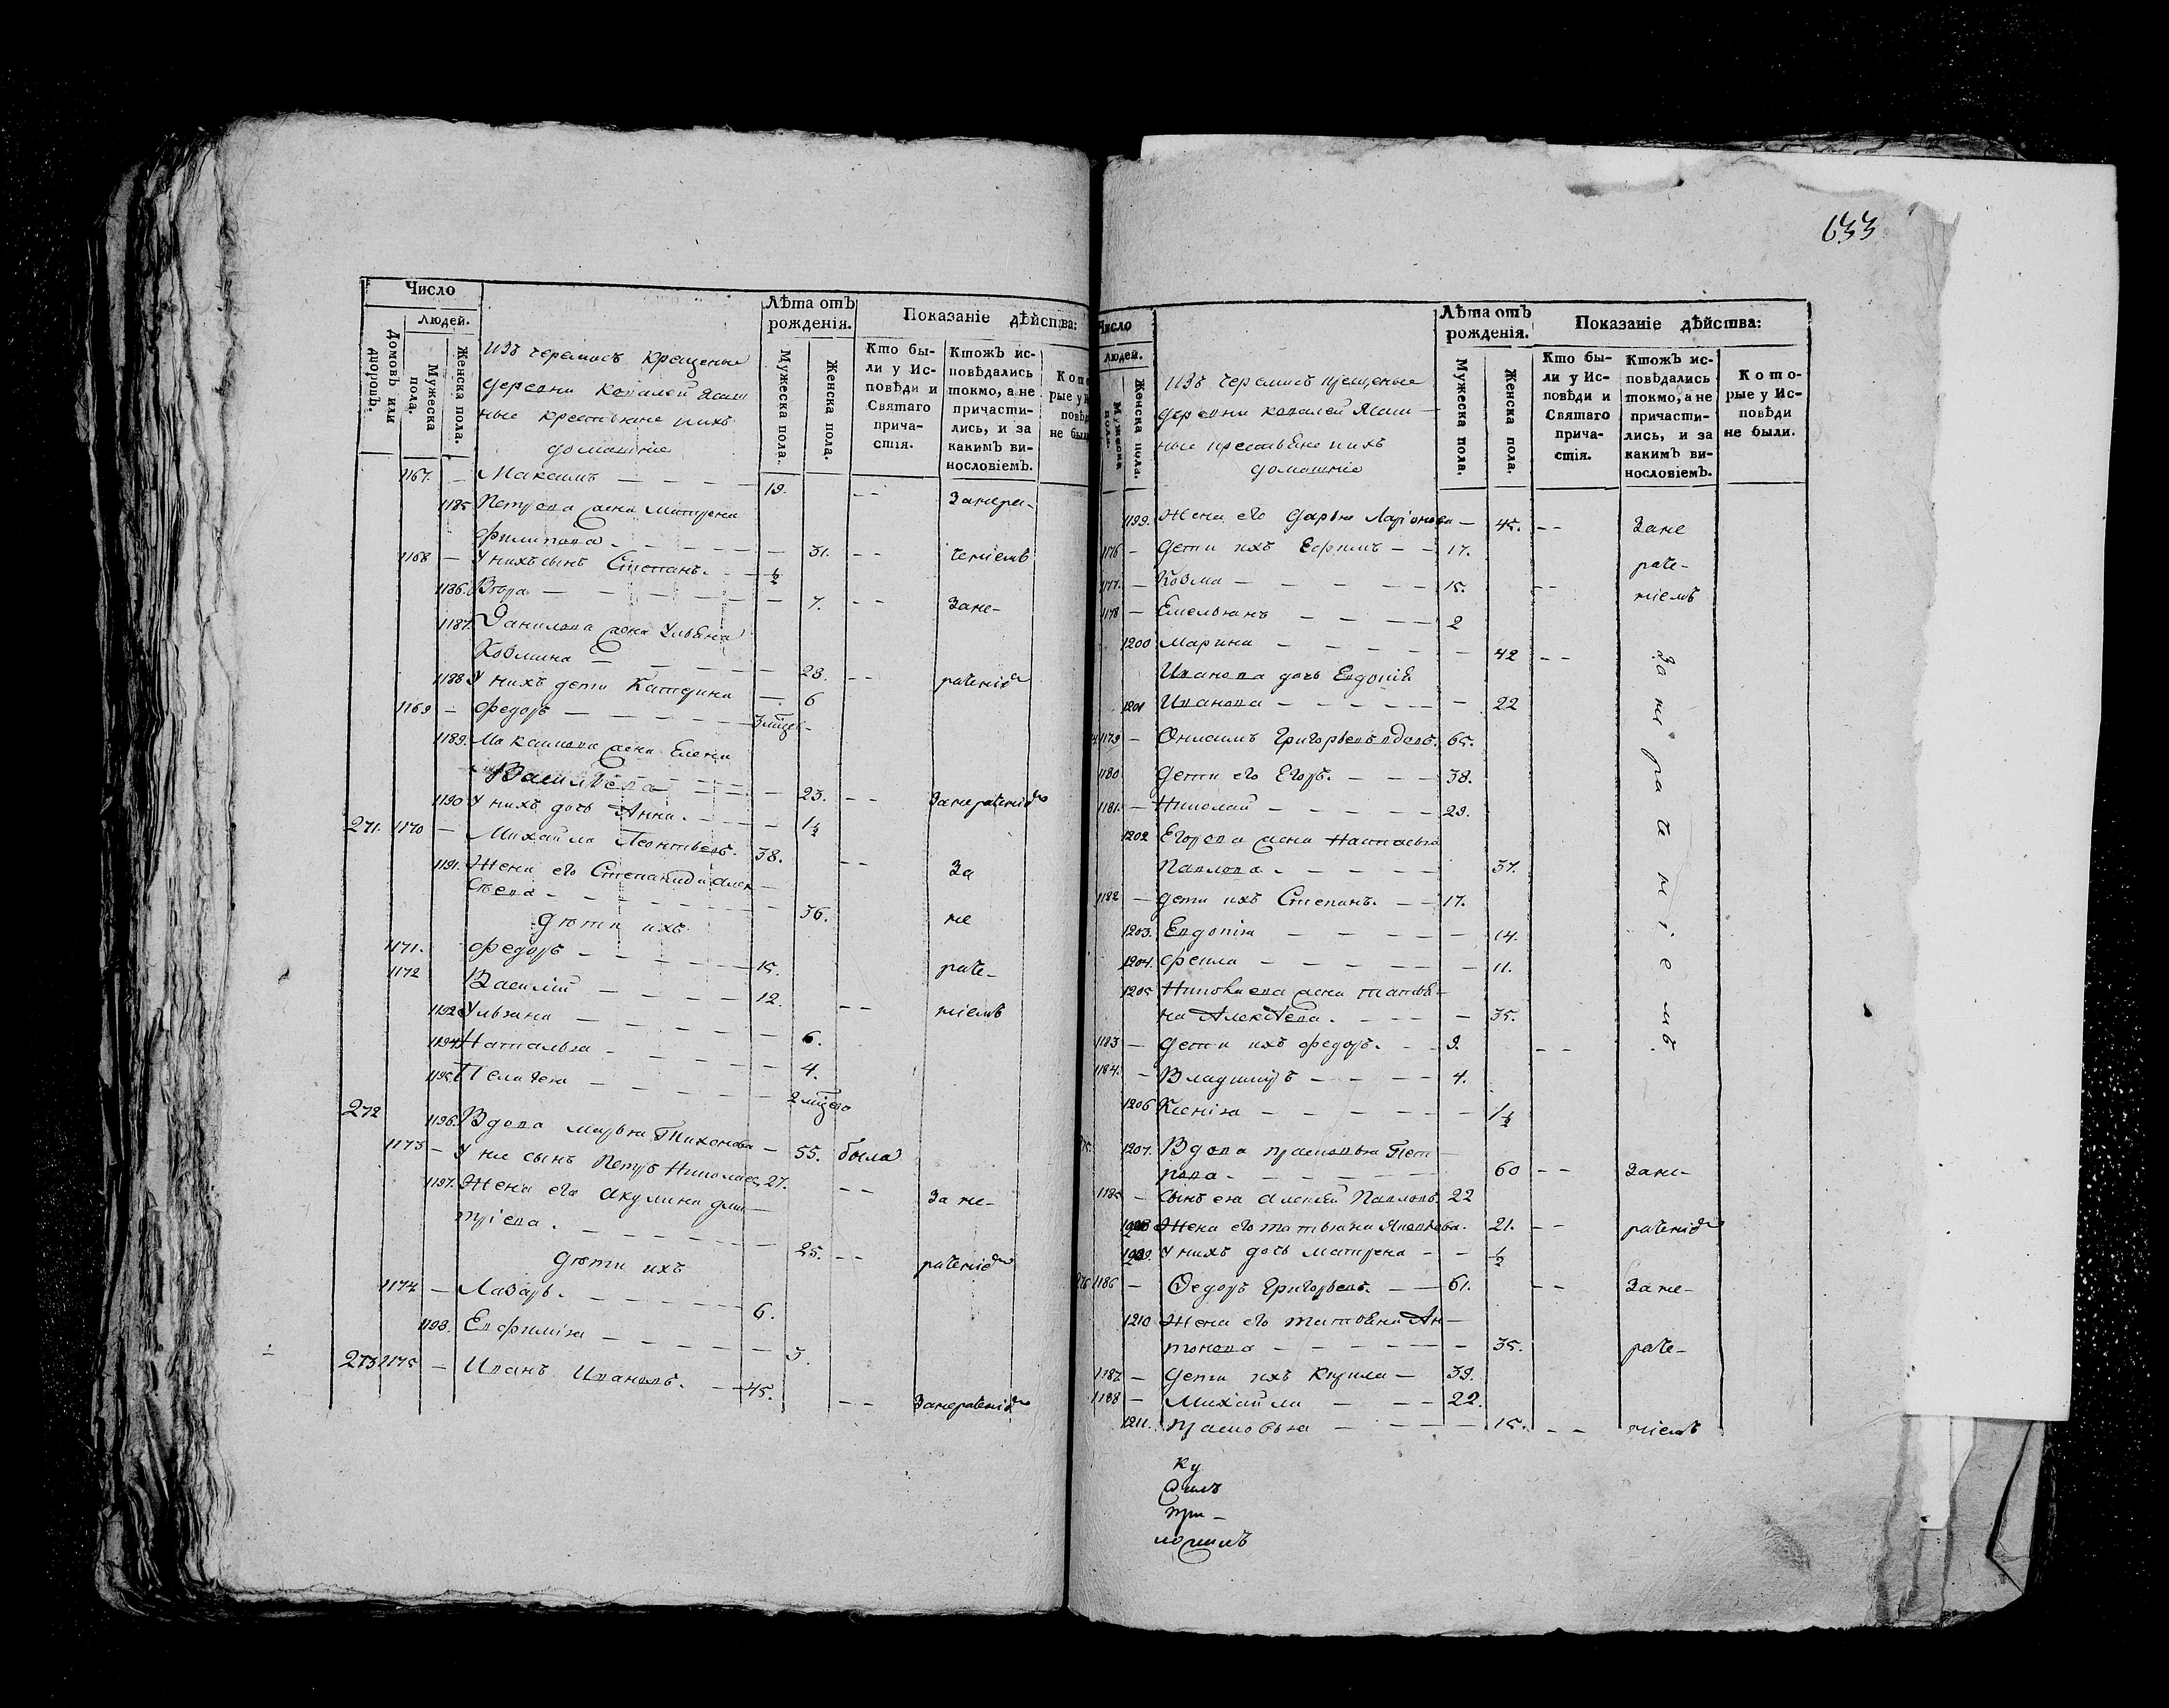 633
Число
людей.
Домовъ или дворовъ.
Мужеска пола.
Женска пола.
Изъ черемисъ крещеные
деревни
ные крестьяне ихъ
домашніе
Лѣта отъ рожденія.
Мужеска пола.
Женска пола.
Показаніе дѣйства:
Кто бы-
ли у Ис-
повѣди и
Святаго
прича-
стія.
Ктожъ ис-
повѣдались
токмо, а не
причасти-
лись, и за
какимъ ви-
нословіемъ.
1167. — Максимъ — 19. -- Занера-
1185 Петрова жена Матрена
Филипова — 31. -- ченіемъ
1168 — У нихъ сынъ Степанъ. — ½
1186. — 7. -- Зане-
1187. Данилова жена Ульяна
Козмина — 28. -- раченіе
1188 У нихъ дети Катерина — 6
1169 — Федоръ —
1189. Максимова жена Елена
Василѣева — 23. -- Занераченіе
1190 У нихъ дочь Анна. — 1½
271. 1170 — Михайла Леонтьевъ. 38. -- За
1191. Жена его Степанида Алек
сѣева — 36. не
дѣти ихъ
1171. Федоръ — 15. раче-
1172 Василій — 12. -- ніемъ
1192 Ульяна — 6.
1194 Наталья — 4.
1195. Пелагея —
272 1196. Вдова Марья Тихонова — 55. была
1173 — У нее сынъ Петръ Николаев 27. -- За не-
1197. Жена его Акулина Дми—
тріева. — 25. -- раченіе
дѣти ихъ
1174 — Лазарь. — 6.
1198. Евфимія — 3.
273 1175 — Иванъ Ивановъ. — 45. -- Занераченіе
Число
людей.
Мужеска пола.
Женска пола.
Изъ черемисъ крещеные
деревни
ные крестьяне ихъ
домашніе
Лѣта отъ рожденія.
Мужеска пола.
Женска пола.
Показаніе дѣйства:
Кто бы-
ли у Ис-
повѣди и
Святаго
прича-
стія.
Ктожъ ис-
повѣдались
токмо, а не
причасти-
лись, и за
какимъ ви-
нословіемъ.
Кото-
рые у Ис-
повѣди
не были.
1199. Жена его Дарья Ларіонова — 45. -- Зане
1176 — Дети ихъ Ефимъ — 17. раче-
1177. — Козма — 15. -- ніемъ
1178 — Емельянъ — 2
1200 Марина — 42 --
Иванова дочь Евдокія
1201 Иванова — 22
1179 — Онисимъ Григорьевъ вдовъ. 65. Занераченіемъ
1180 Дети его Егоръ. — 38.
1181. — Николай — 29.
1202 Егорова жена Наталья
Павлова. — 37.
1182 — Дети ихъ Степанъ. — 17.
1203. Евдокія — 14.
1204. Фекла — 11.
1205 Николаева жена Татья—
на Алексѣева. — 35.
1183 — Дети ихъ Федоръ. — 9. --
1184. — Владимиръ — 4.
1206 Ксенія — 1½
1207. Вдова Прасковья Пет—
рова — 60 -- Зане-
1185 — Сынъ ея Алексей Павловъ. 22
1208 Жена его Татьяна Яковлева. 21. -- раченіе
1209. У нихъ дочь Матрена — ½
1186 — Федоръ Григорьевъ. — 61. -- Зане-
1210 Жена его Татьяна Ан—
тонова — 35. раче-
1187 — Дети ихъ Кирила — 39.
1188 — Михайла — 22.
1211. Прасковья — 15. -- ніемъ